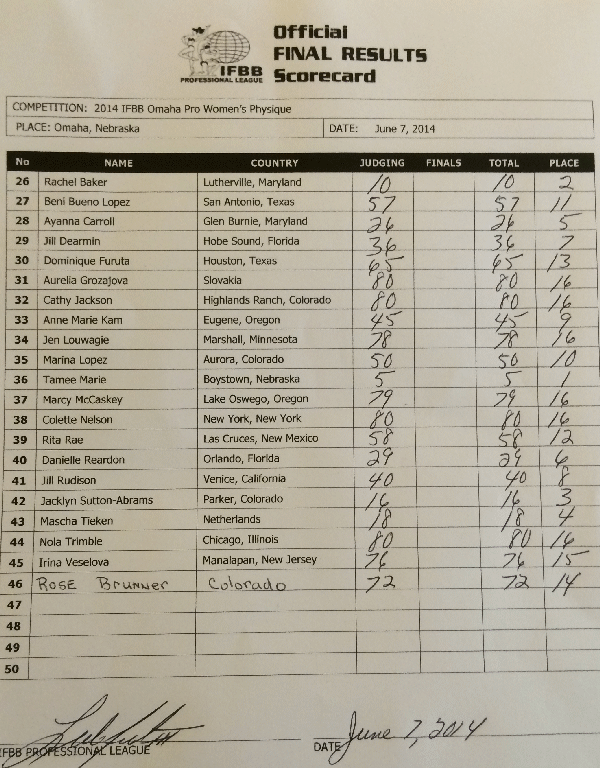 Official
FINAL RESULTS
Scorecard
IFBB
PROFESSIONAL LEAGUE
COMPETITION: 2014 IFBB Omaha Pro Women's Physique
PLACE: Omaha, Nebraska DATE: June 7, 2014
No NAME COUNTRY JUDGING FINALS TOTAL PLACE
26 Rachel Baker Lutherville, Maryland 10 10 2
27 Beni Bueno Lopez San Antonio, Texas 57 57 11
28 Ayanna Carroll Glen Burnie, Maryland 26 26 5
29 Jill Dearmin Hobe Sound, Florida 36 36 7
30 Dominique Furuta Houston, Texas 65 65 13
31 Aurelia Grozajova Slovakia 80 80 16
32 Cathy Jackson Highlands Ranch, Colorado 80 80 16
33 Anne Marie Kam Eugene, Oregon 45 45 9
34 Jen Louwagie Marshall, Minnesota 78 78 16
35 Marina Lopez Aurora, Colorado 50 50 10
36 Tamee Marie Boystown, Nebraska 5 5 1
37 Marcy McCaskey Lake Oswego, Oregon 79 79 16
38 Colette Nelson New York, New York 80 80 16
39 Rita Rae Las Cruces, New Mexico 58 58 12
40 Danielle Reardon Orlando, Florida 29 29 6
41 Jill Rudison Venice, California 40 40 8
42 Jacklyn Sutton-Abrams Parker, Colorado 16 16 3
43 Mascha Tieken Netherlands 18 18 4
44 Nola Trimble Chicago, Illinois 80 80 16
45 Irina Veselova Manalapan, New Jersey 76 76 15
46 Rose Brunner Colorado 72 72 14
47
48
49
50
IFBB PROFESSIONAL LEAGUE DATE June 7, 2014